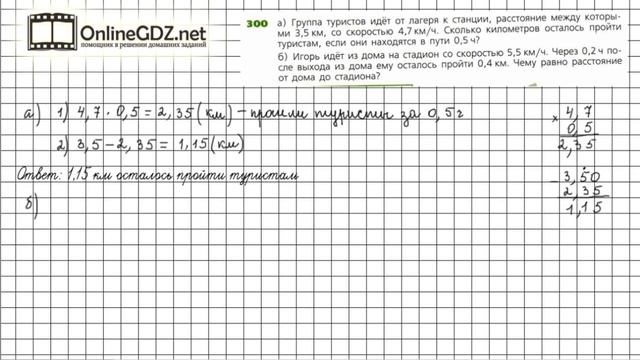 OnlineGDZ.net
помощник в решении домашних заданий
300 а) Группа туристов идёт от лагеря к станции, расстояние между которы-
ми 3,5 км, со скоростью 4,7 км/ч. Сколько километров осталось пройти
туристам, если они находятся в пути 0,5 ч?
б) Игорь идёт из дома на стадион со скоростью 5,5 км/ч. Через 0,2 ч по-
сле выхода из дома ему осталось пройти 0,4 км. Чему равно расстояние
от дома до стадиона?
а) 1) 4,7 · 0,5 = 2,35 (км) – прошли туристы за 0,5 ч
2) 3,5 – 2,35 = 1,15 (км)
Ответ: 1,15 км осталось пройти туристам
б)
× 4,7
0,5
2,35
– 3,50
2,35
1,15